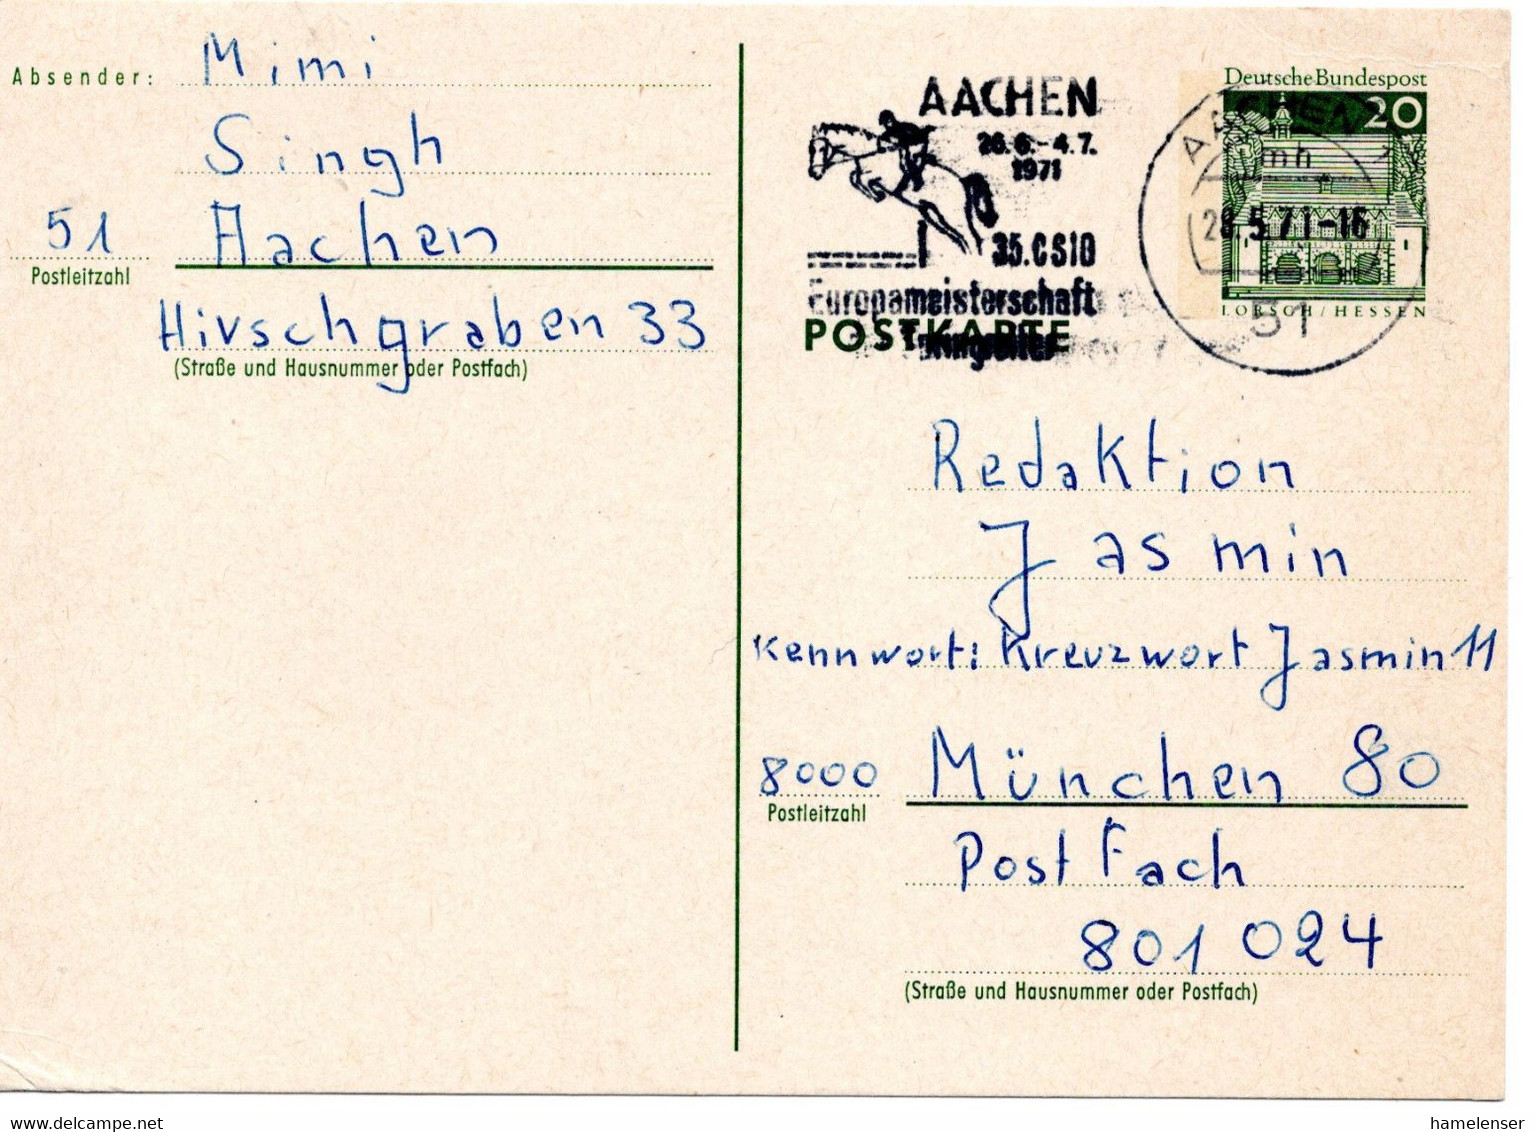 Absender: Mimi
Singh
51 Aachen
Postleitzahl
Hirschgraben 33
(Straße und Hausnummer oder Postfach)
AACHEN
26.6.-4.7.
1971
35.CSIO
Europameisterschaft
POSTKARTE
Deutsche Bundespost
20
AACHEN
28.5.71-16
51
LORSCH/HESSEN
Redaktion
Jasmin
Kennwort: Kreuzwort Jasmin 11
8000 München 80
Postleitzahl
Postfach
801024
(Straße und Hausnummer oder Postfach)
hamelenser
www.delcampe.net